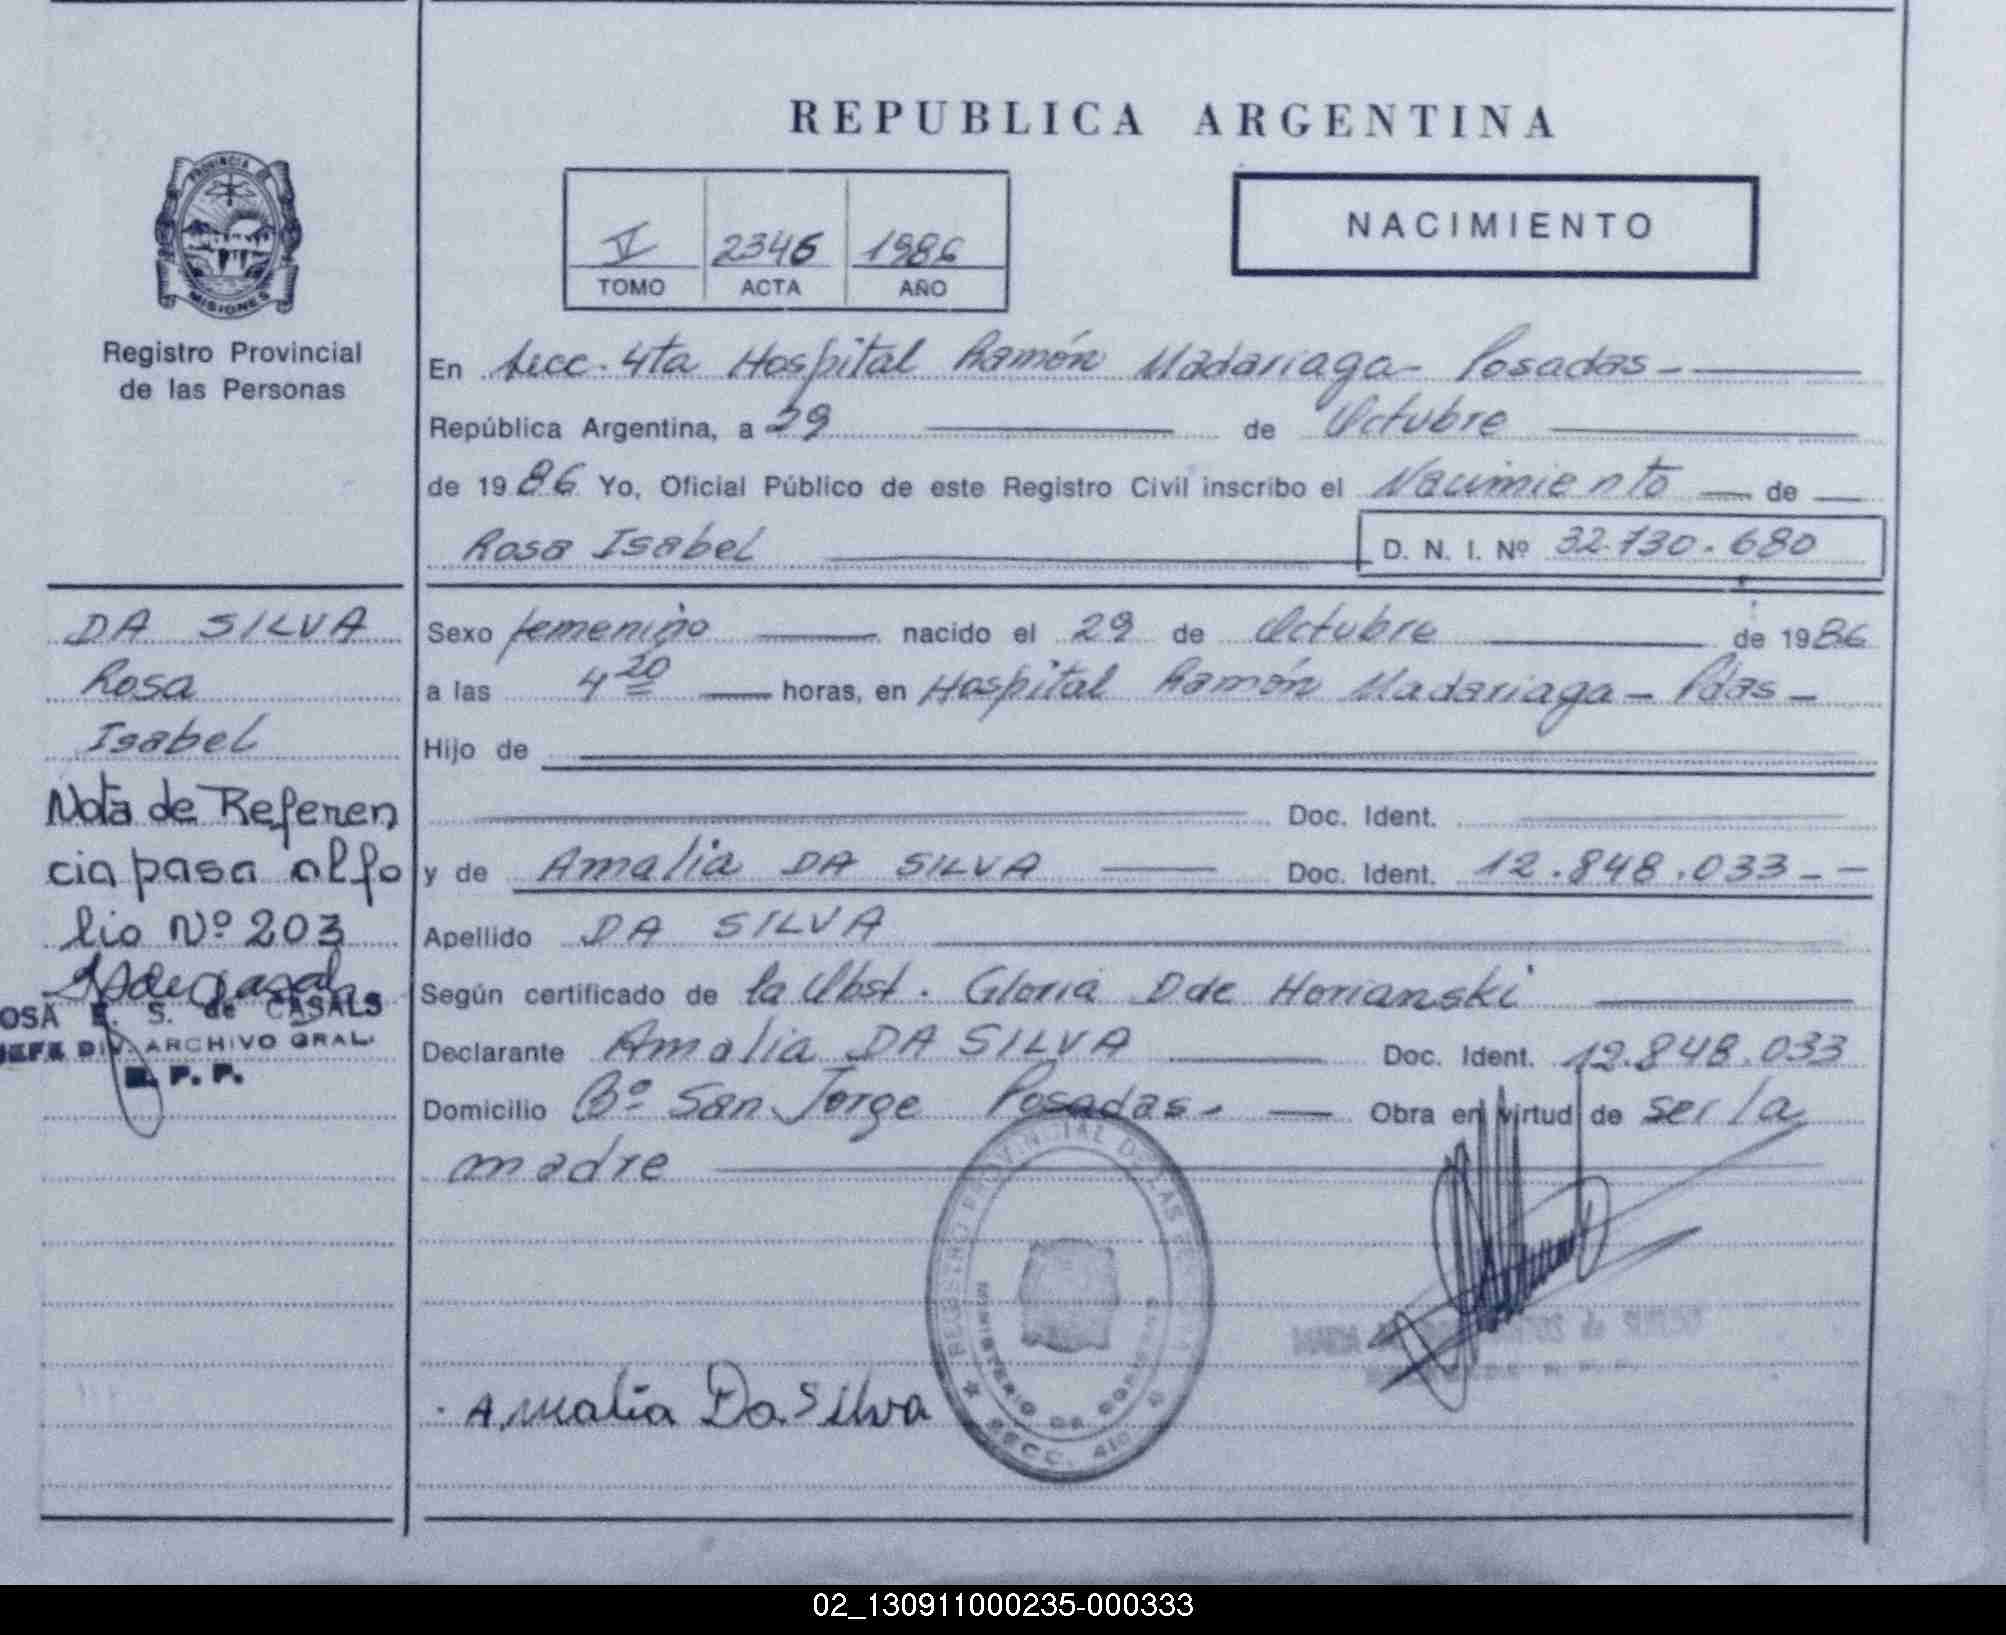 REPUBLICA ARGENTINA
PROVINCIA DE MISIONES
Registro Provincial
de las Personas
V 2346 1986
TOMO ACTA AÑO
NACIMIENTO
En Secc. 4ta Hospital Ramón Madariaga - Posadas -
República Argentina, a 29 de Octubre
de 1986 Yo, Oficial Público de este Registro Civil inscribo el Nacimiento de
Rosa Isabel D. N. I. Nº 32.130.680
Sexo femenino nacido el 29 de Octubre de 1986
a las 4 20 horas, en Hospital Ramón Madariaga - Pdas -
Hijo de
Doc. Ident.
y de Amalia DA SILVA Doc. Ident. 12.848.033 - -
Apellido DA SILVA
Según certificado de la Obst. Gloria D de Horianski
Declarante Amalia DA SILVA Doc. Ident. 12.848.033
Domicilio Bº San Jorge Posadas. Obra en virtud de ser la
madre
DA SILVA
Rosa
Isabel
Nota de Referen
cia pasa al fo
lio Nº 203
OSA E. S. de CASALS
JEFE DIV. ARCHIVO GRAL.
R. P. P.
REGISTRO PROVINCIAL DE LAS
MINISTERIO DE GOBIERNO
SECC. 4ta
Amalia Da Silva
02_130911000235-000333